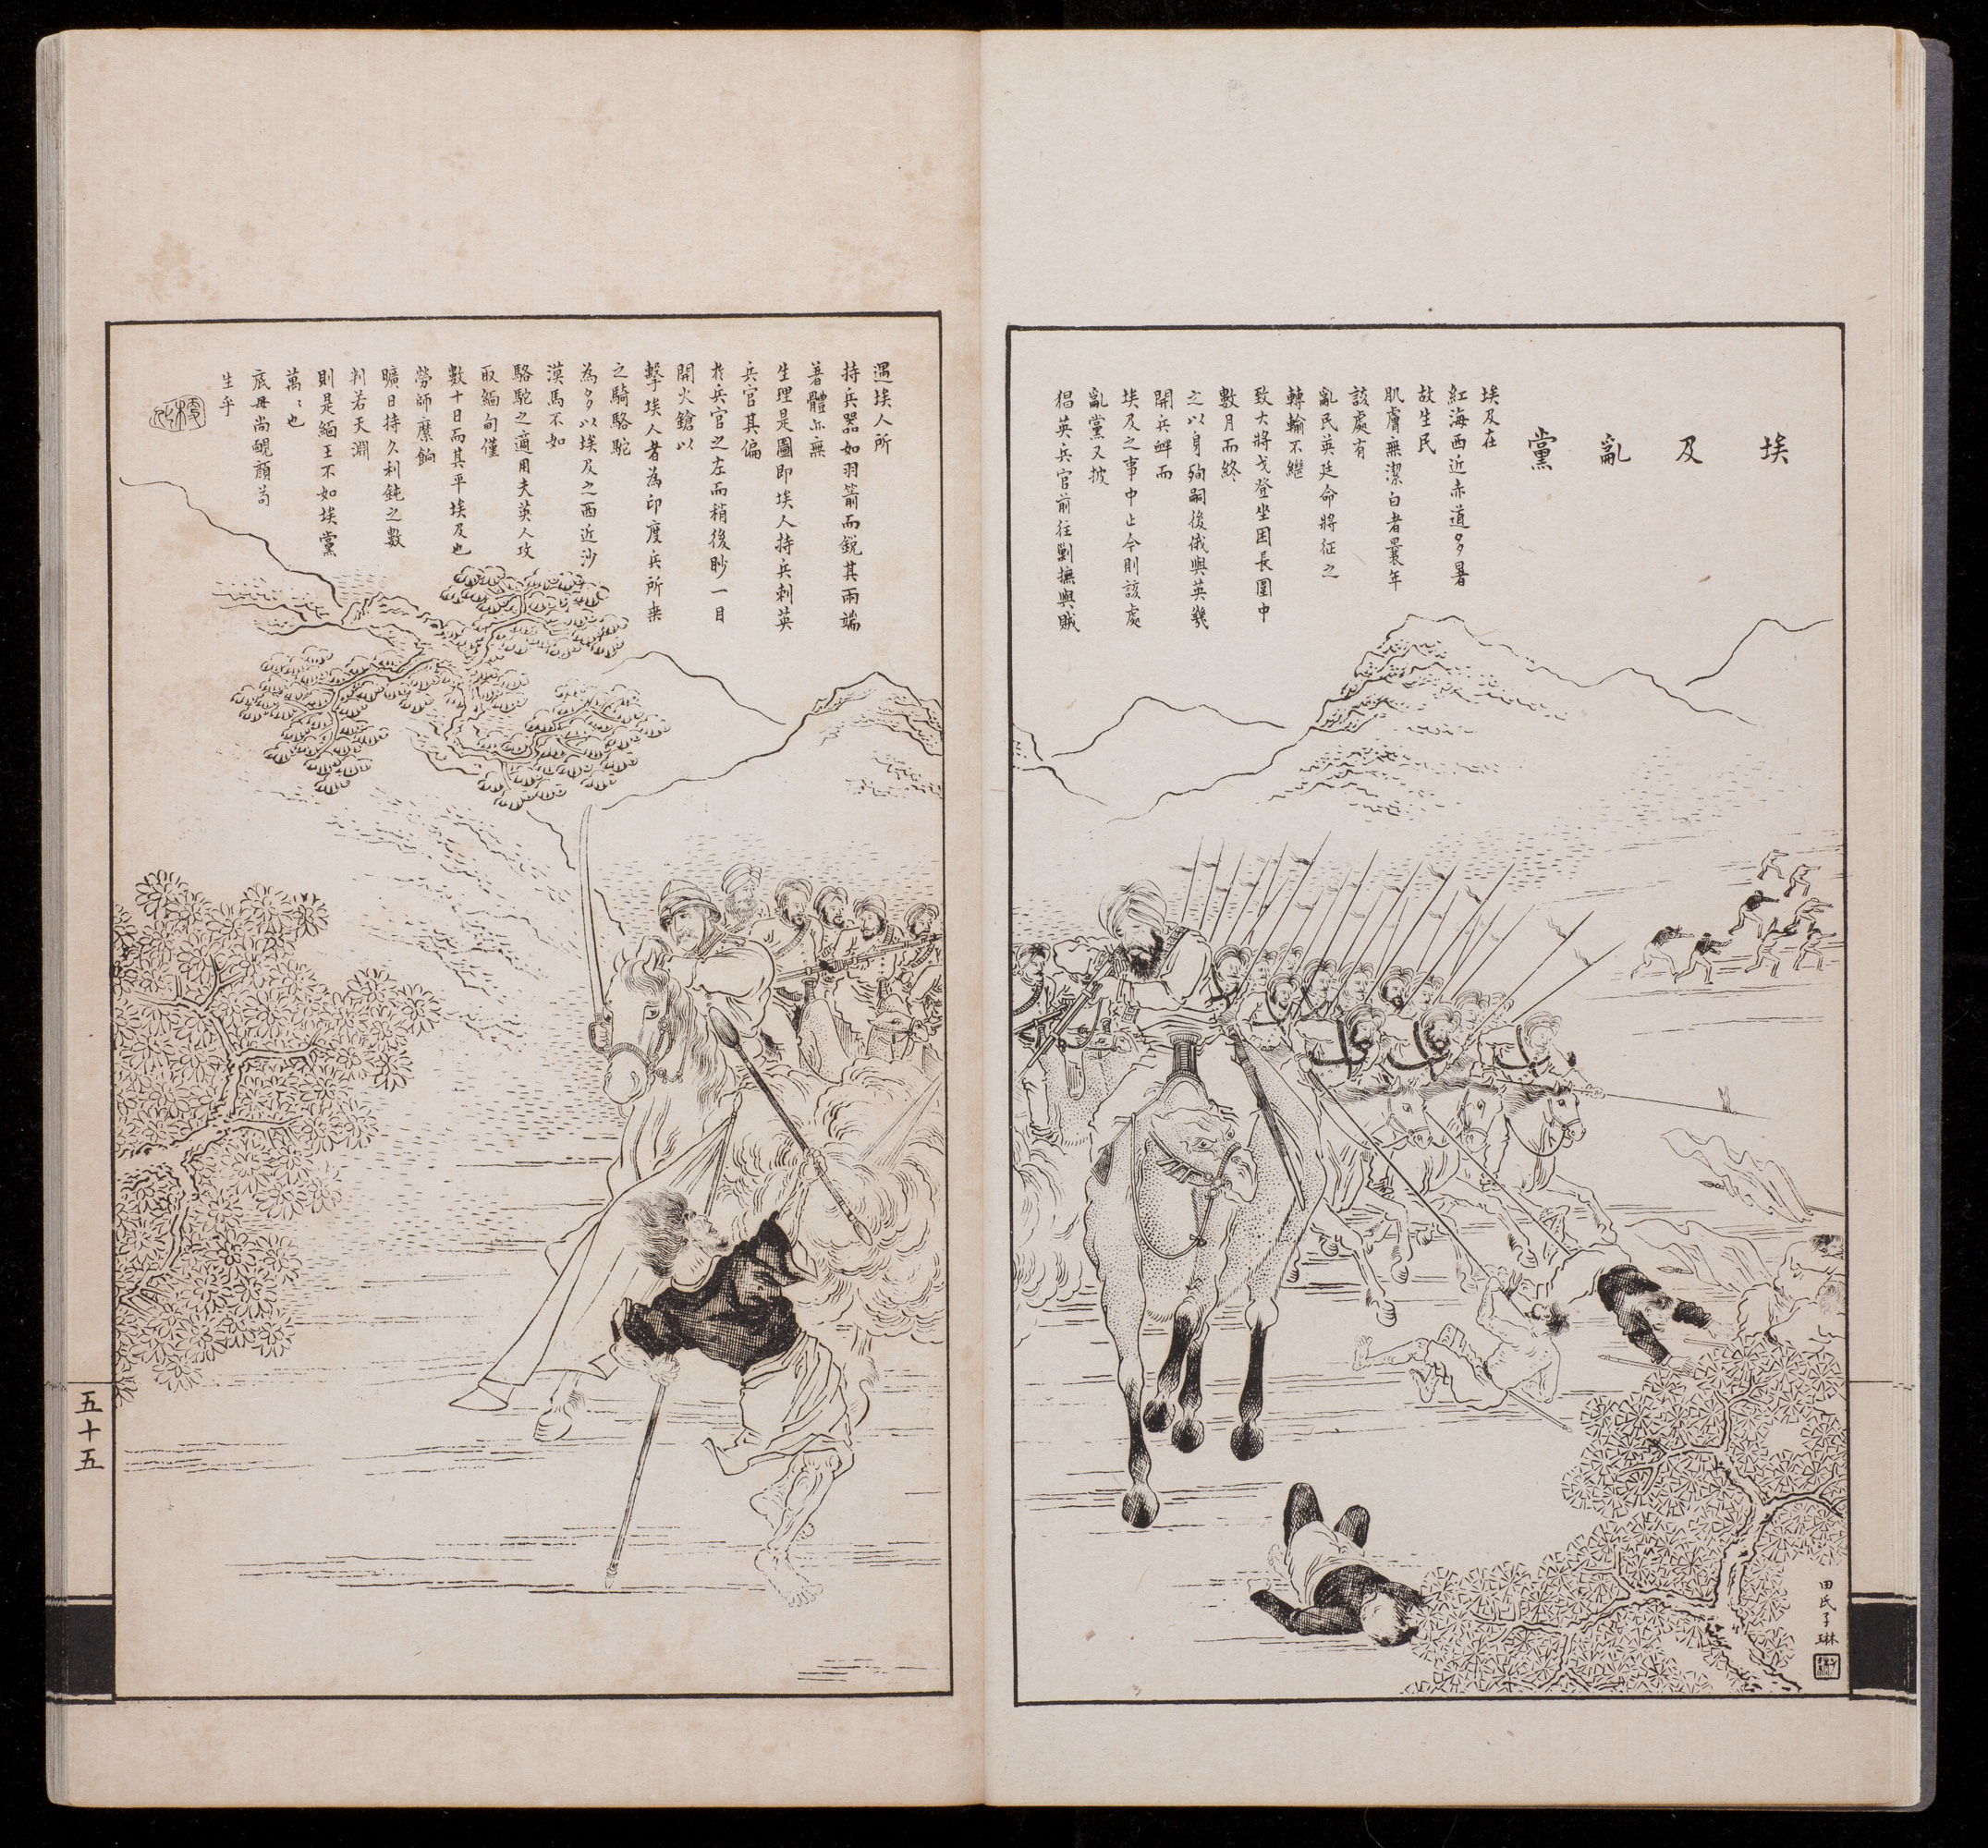 埃及亂黨
埃及在
紅海西近赤道多暑
故生民
肌膚無潔白者曩年
該處有
亂民英廷命將征之
轉輸不繼
致大將戈登坐困長圍中
數月而終
之以身殉嗣後俄與英幾
開兵衅而
埃及之事中止今則該處
亂黨又披
猖英兵官前往剿撫與賊
遇埃人所
持兵器如羽箭而銳其兩端
著體亦無
生理是圖即埃人持兵刺英
兵官其偏
於兵官之左而稍後眇一目
開火鎗以
擊埃人者為印度兵所乘
之騎駱駝
為多以埃及之西近沙
漠馬不如
駱駝之適用夫英人攻
取緬甸僅
數十日而其平埃及也
勞師縻餉
曠日持久利鈍之數
判若天淵
則是緬王不如埃黨
萬〻也
底毋尚靦顏苟
生乎
田氏子琳
五十五